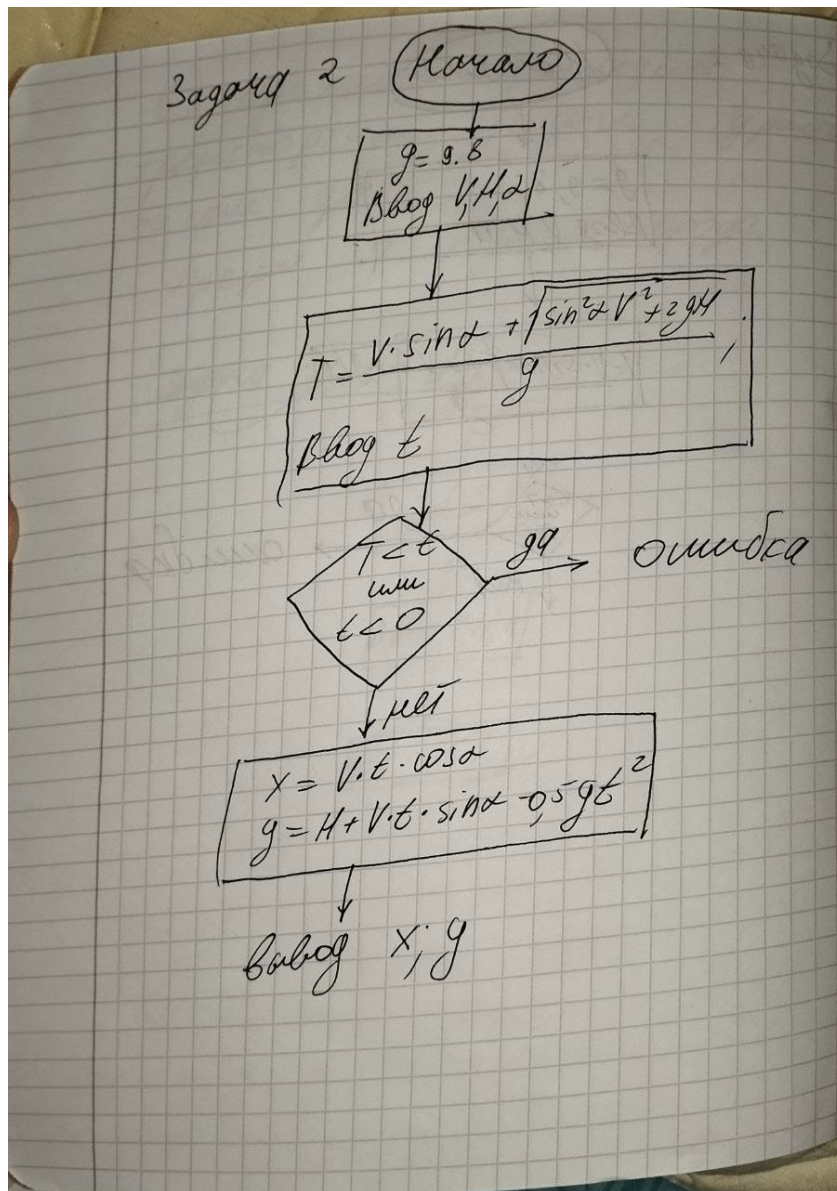 Задача 2
Начало
g = 9.8
Ввод V, H, α
T = (V·sinα + √(sin²αV² + 2gH)) / g ;
Ввод t
T < t
или
t < 0
да
ошибка
нет
x = V·t·cosα
y = H + V·t·sinα - 0,5gt²
вывод x; y